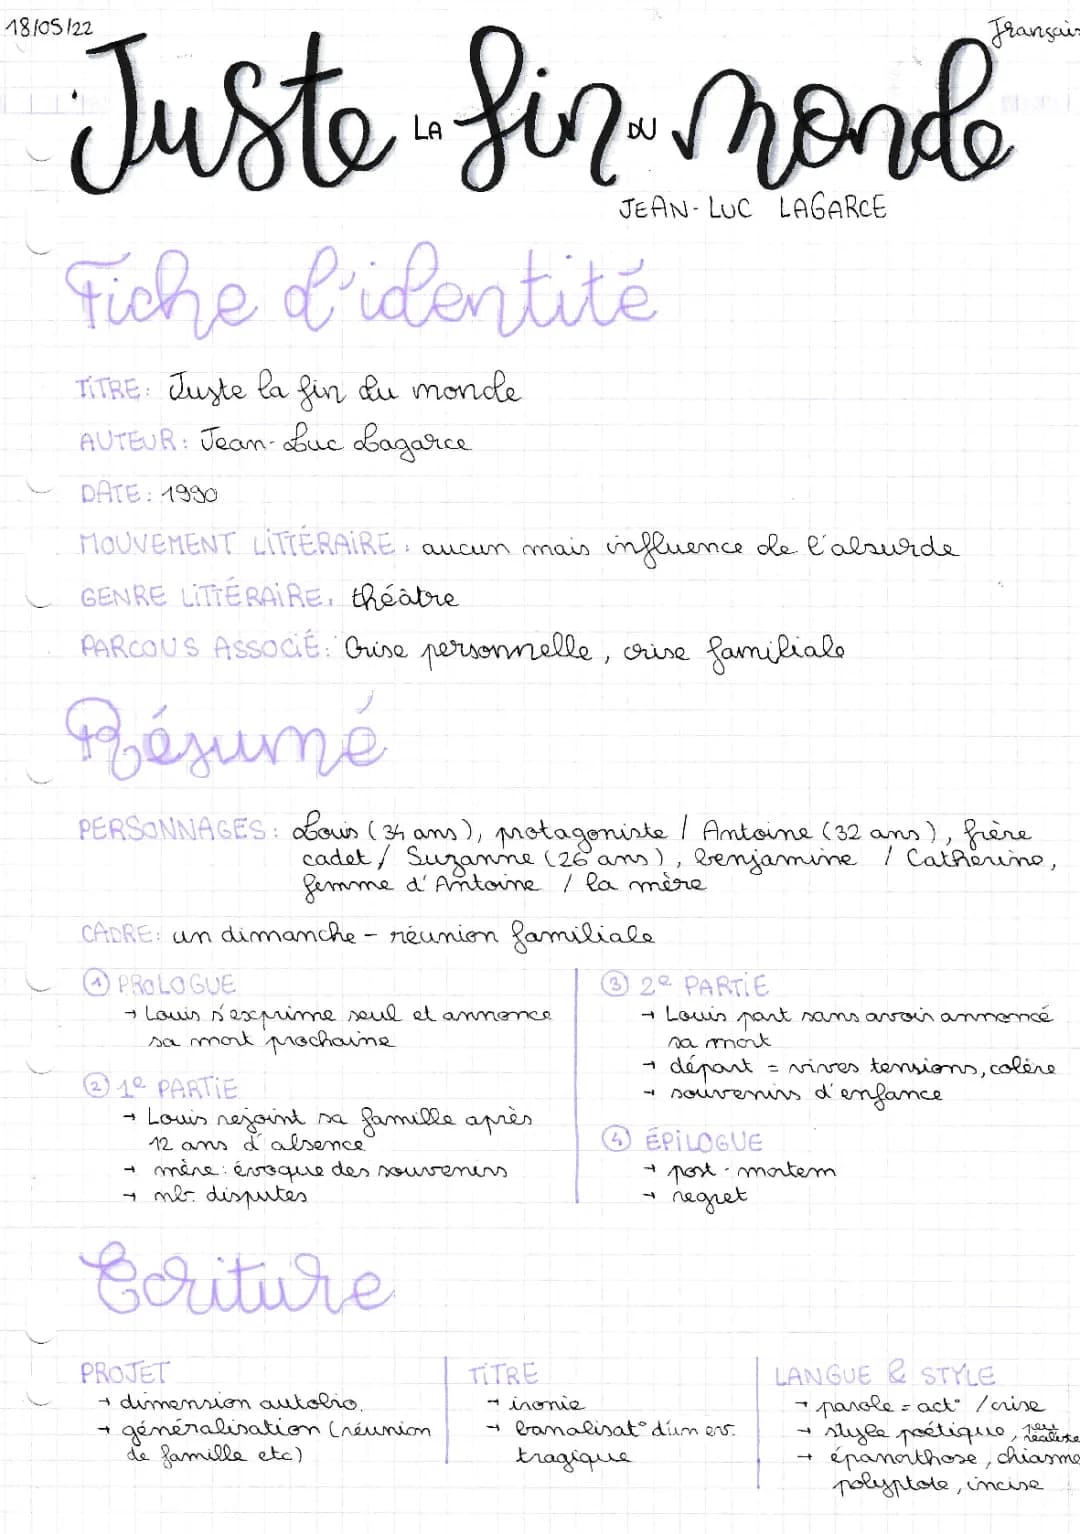 18/05/22
Français
Juste LA fin DU monde
JEAN-LUC LAGARCE
Fiche d'identité
TITRE: Juste la fin du monde
AUTEUR: Jean-Luc Lagarce
DATE: 1990
MOUVEMENT LITTÉRAIRE: aucun mais influence de l'absurde
GENRE LITTÉRAIRE: théâtre
PARCOUS ASSOCIÉ: Crise personnelle, crise familiale
Résumé
PERSONNAGES: Louis (34 ans), protagoniste / Antoine (32 ans), frère
cadet / Suzanne (26 ans), benjamine / Catherine,
femme d'Antoine / la mère
CADRE: un dimanche - réunion familiale
① PROLOGUE
→ Louis s'exprime seul et annonce
sa mort prochaine
② 1e PARTIE
→ Louis rejoint sa famille après
12 ans d'absence
→ mère: évoque des souvenirs
→ nb. disputes
③ 2e PARTIE
→ Louis part sans avoir annoncé
sa mort
→ départ = vives tensions, colère
→ souvenirs d'enfance
④ ÉPILOGUE
→ post-mortem
→ regret
Ecriture
PROJET
→ dimension autobio.
→ généralisation (réunion
de famille etc)
TITRE
→ ironie
→ banalisat° d'un ev.
tragique
LANGUE & STYLE
→ parole = act° / crise
→ style poétique, peu réaliste
→ épanorthose, chiasme
polyptote, incise